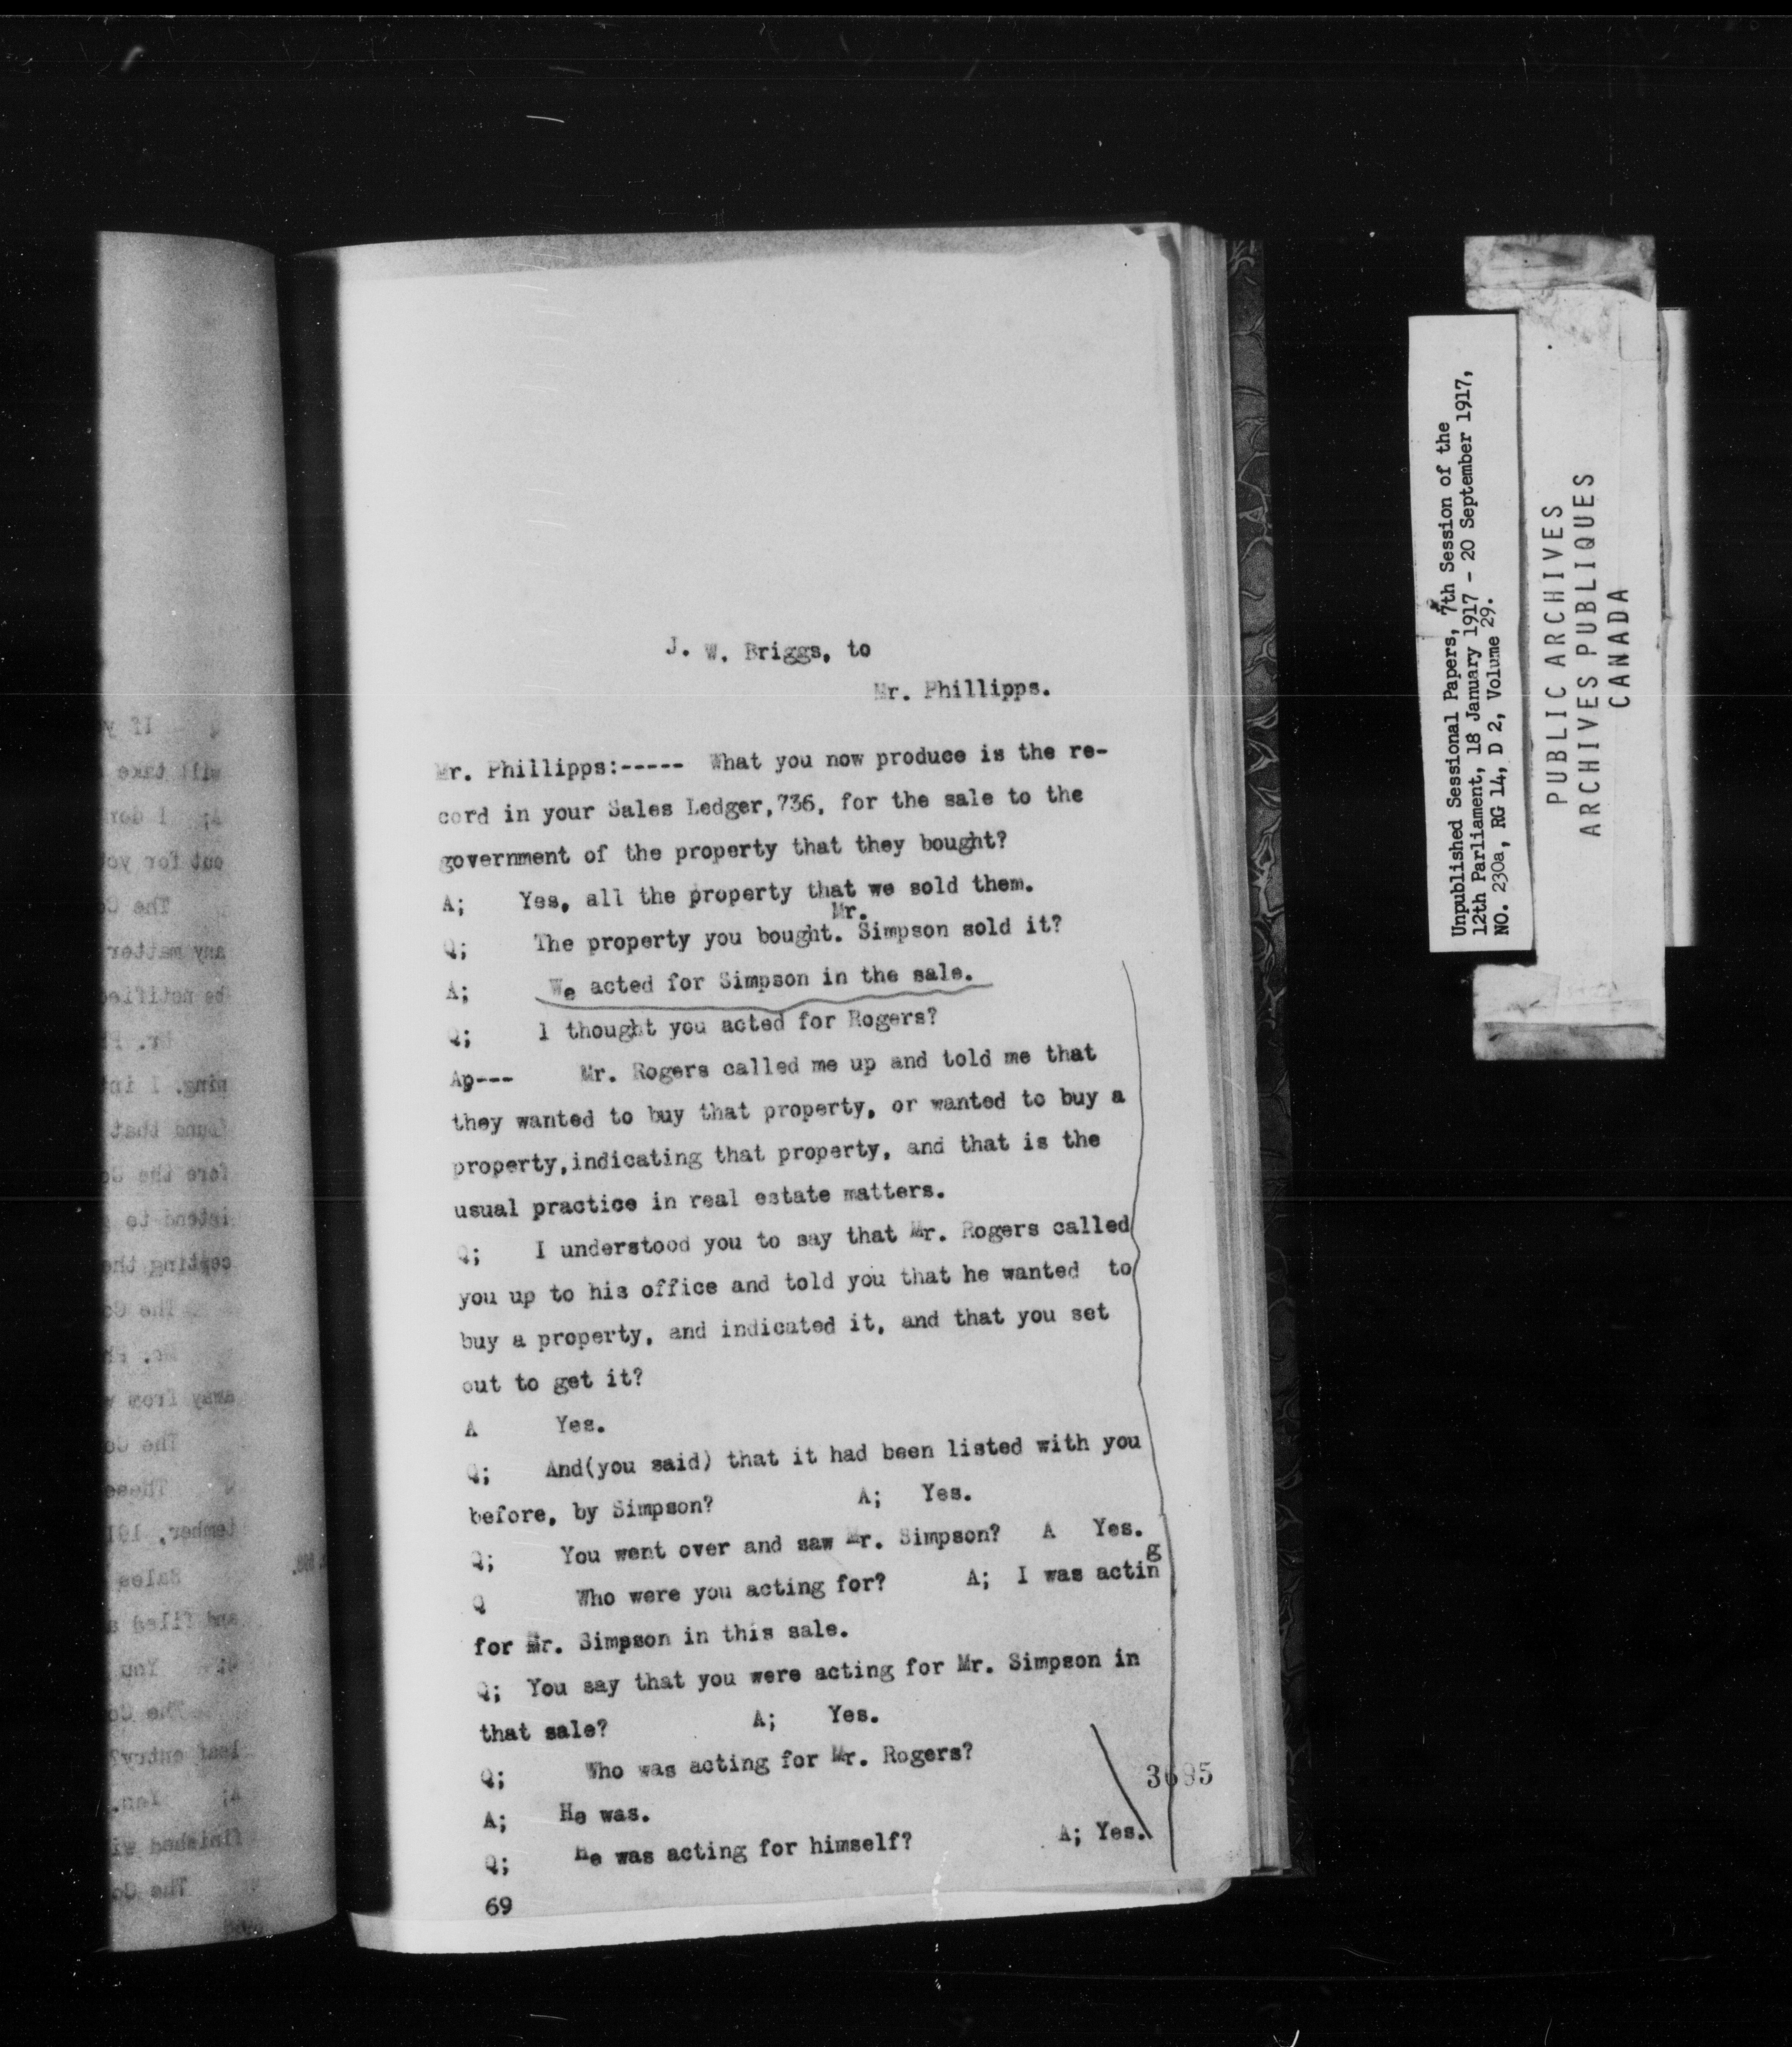 J. W. Briggs, to
Mr. Phillipps.
Mr. Phillipps:----- What you now produce is the re-
cord in your Sales Ledger,736, for the sale to the
government of the property that they bought?
A; Yes, all the property that we sold them.
Mr.
Q; The property you bought. Simpson sold it?
A; We acted for Simpson in the sale.
Q; I thought you acted for Rogers?
Ap--- Mr. Rogers called me up and told me that
they wanted to buy that property, or wanted to buy a
property,indicating that property, and that is the
usual practice in real estate matters.
Q; I understood you to say that Mr. Rogers called
you up to his office and told you that he wanted to
buy a property, and indicated it, and that you set
out to get it?
A Yes.
Q; And(you said) that it had been listed with you
before, by Simpson? A; Yes.
Q; You went over and saw Mr. Simpson? A Yes.
g
Q Who were you acting for? A; I was actin
for Mr. Simpson in this sale.
Q; You say that you were acting for Mr. Simpson in
that sale? A; Yes.
Q; Who was acting for Mr. Rogers?
3695
A; He was.
Q; He was acting for himself? A; Yes.
69
Unpublished Sessional Papers, 7th Session of the
12th Parliament, 18 January 1917 - 20 September 1917,
NO. 230a, RG 14, D 2, Volume 29.
PUBLIC ARCHIVES
ARCHIVES PUBLIQUES
CANADA